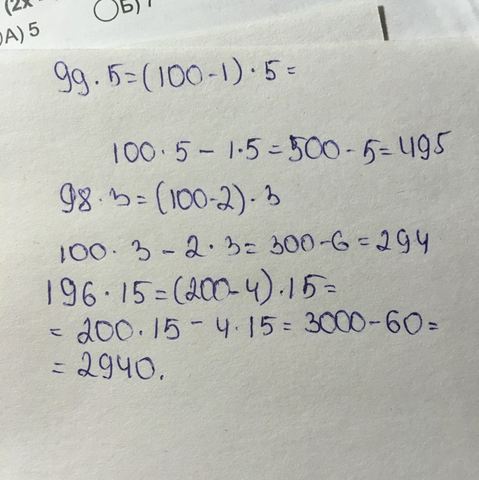 (2x
А) 5
Б) 1
99 · 5 = (100 - 1) · 5 =
100 · 5 - 1 · 5 = 500 - 5 = 495
98 · 3 = (100 - 2) · 3
100 · 3 - 2 · 3 = 300 - 6 = 294
196 · 15 = (200 - 4) · 15 =
= 200 · 15 - 4 · 15 = 3000 - 60 =
= 2940.